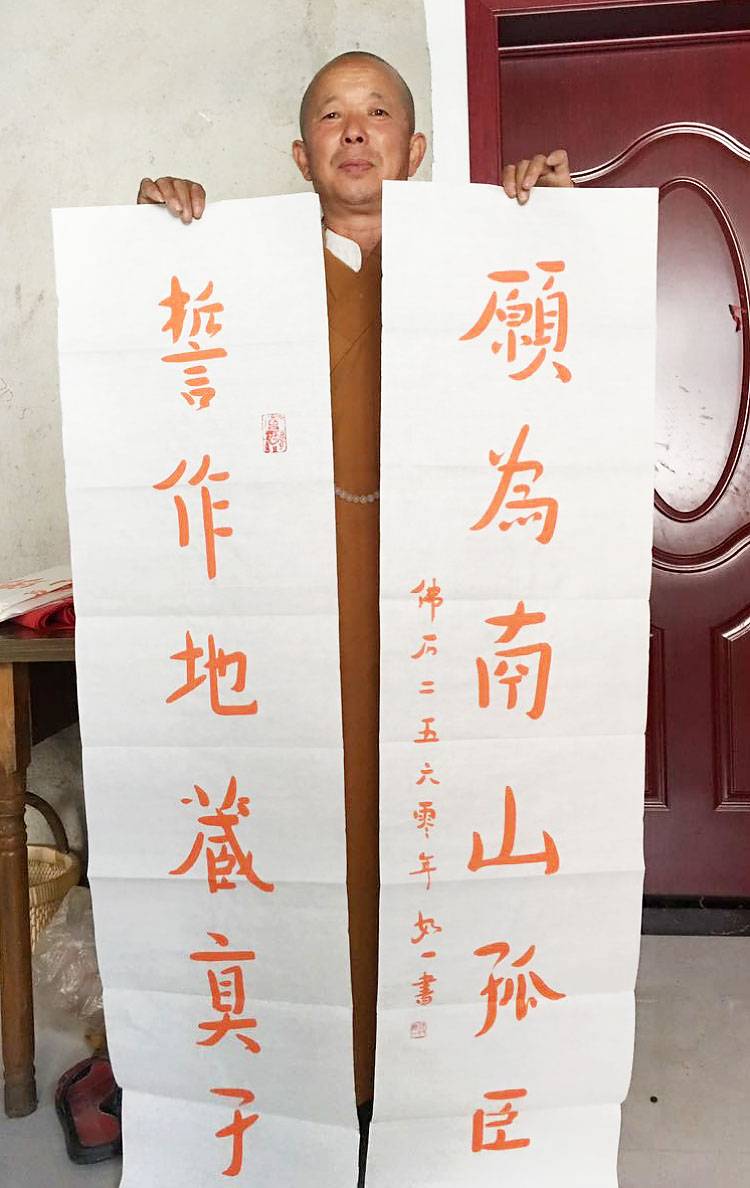 願為南山孤臣
佛后二五六零年 如一書
誓作地藏真子